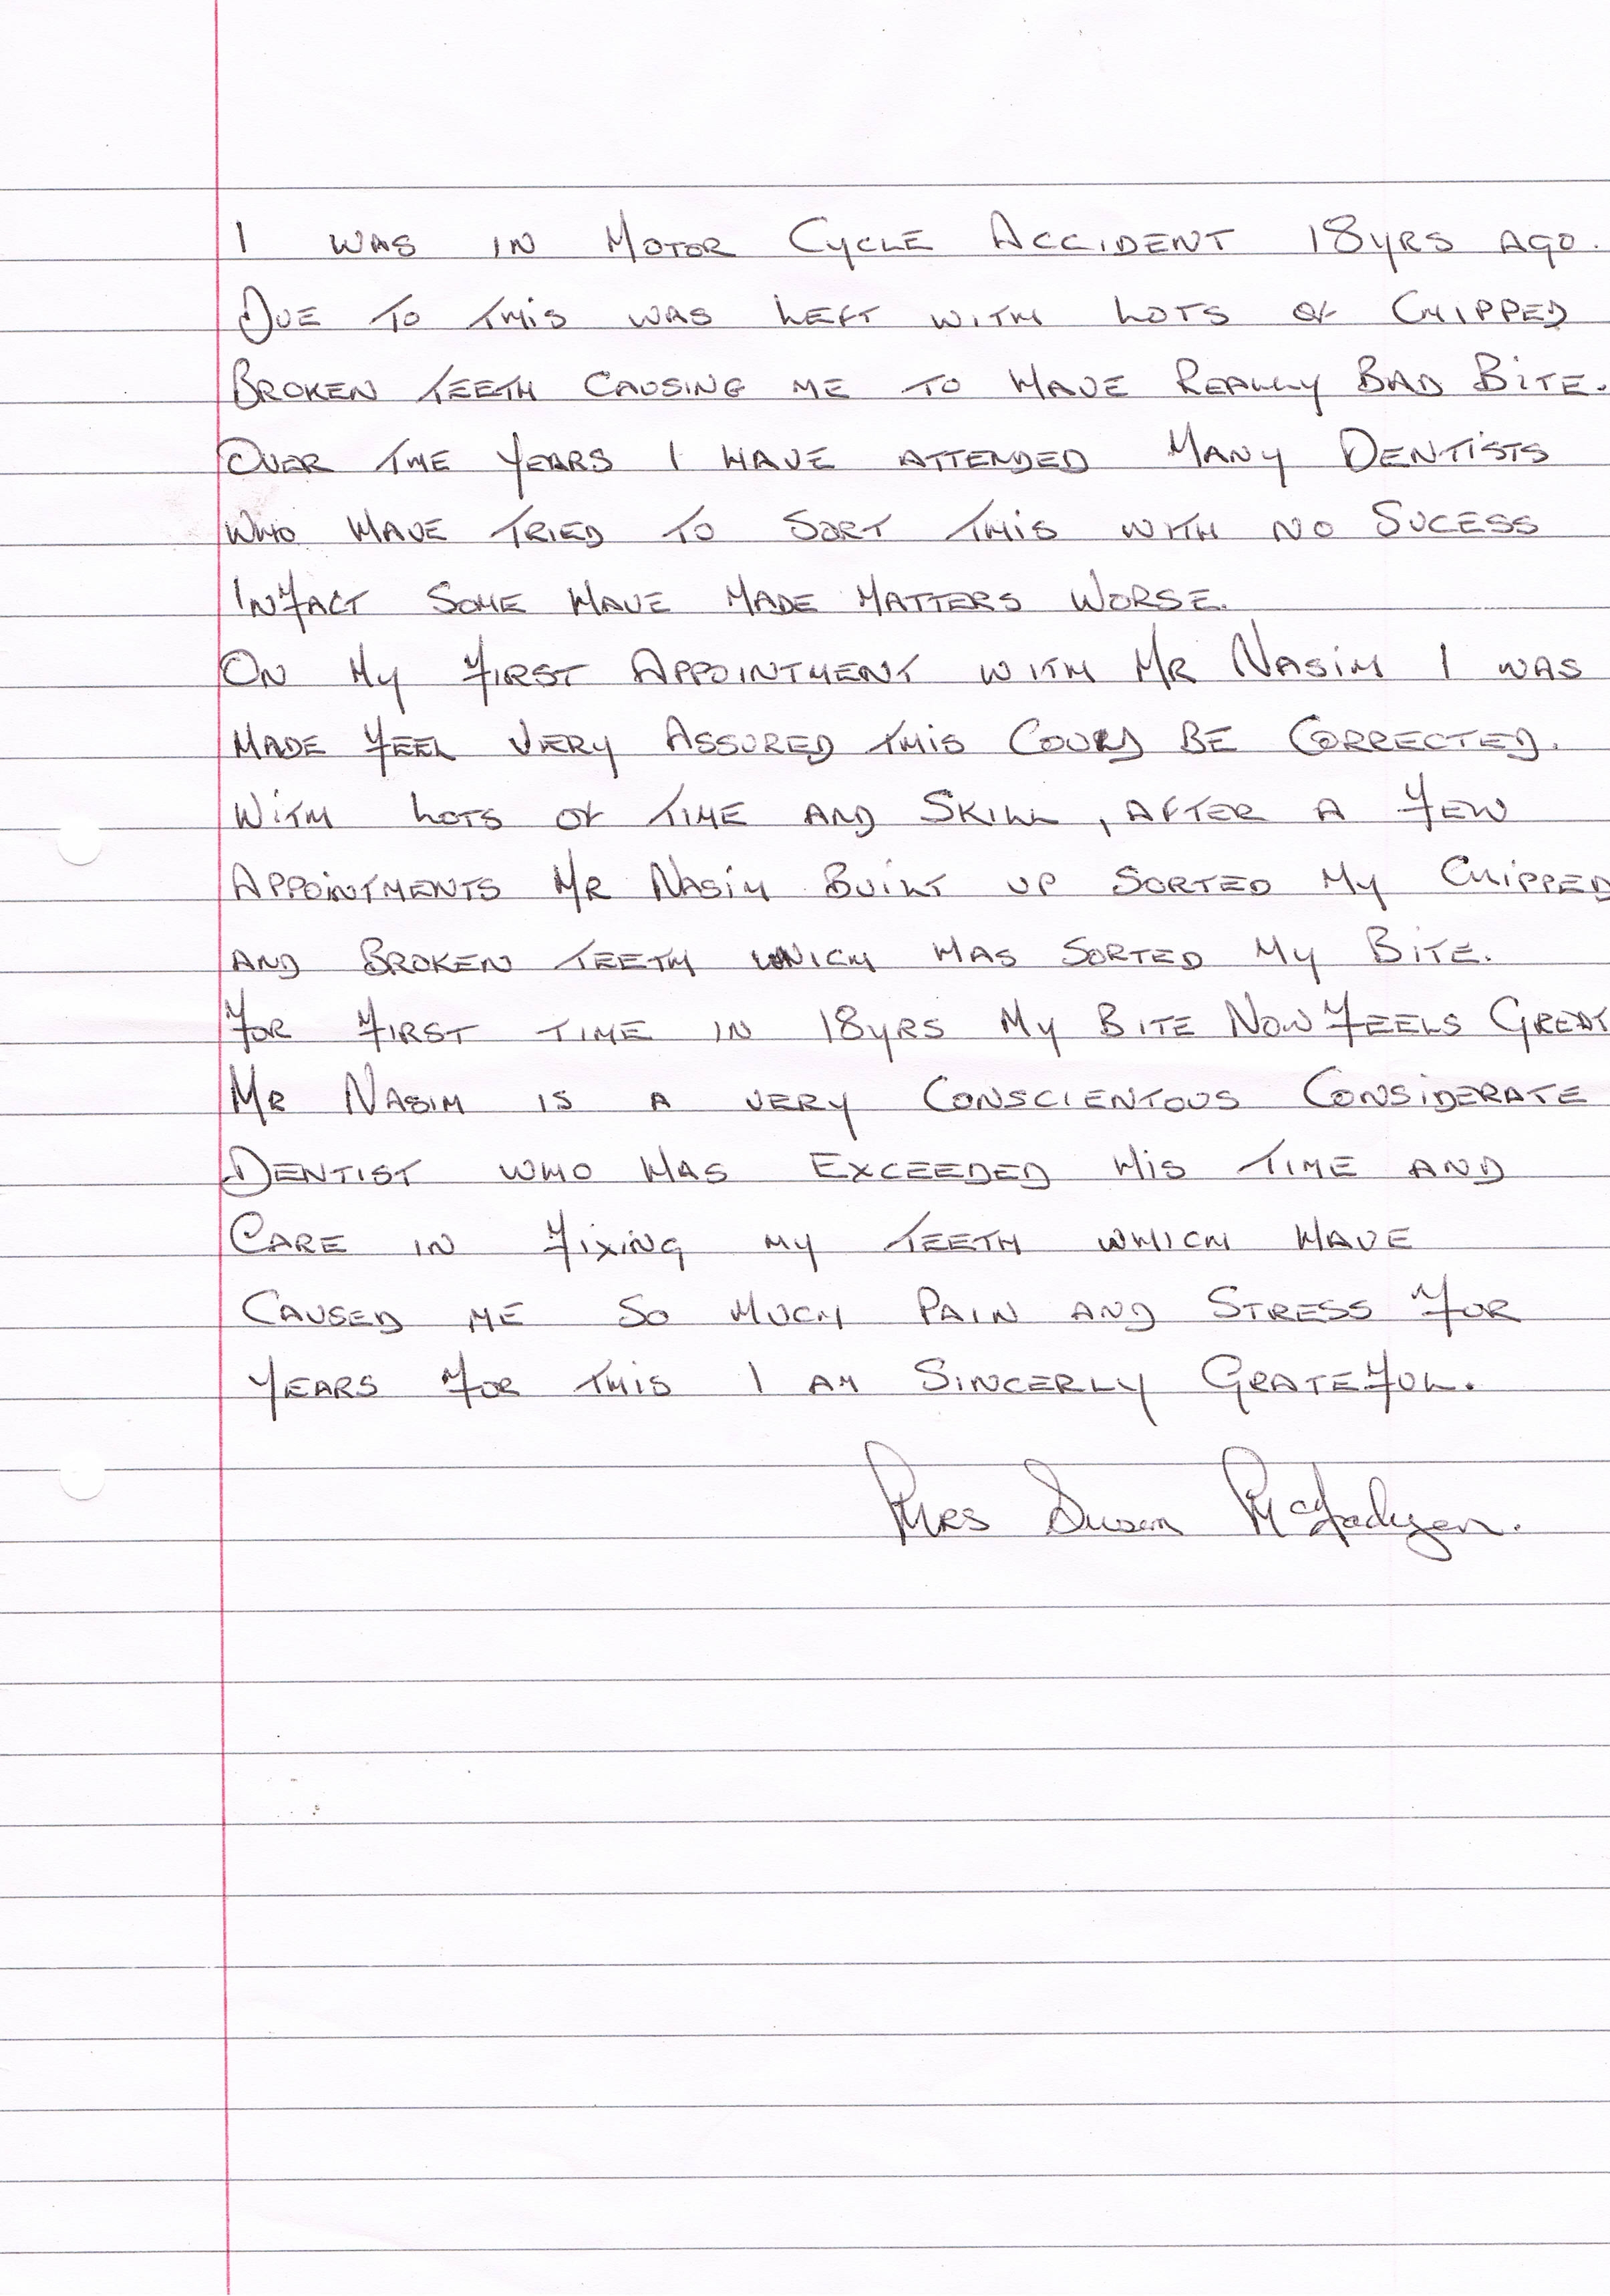 I WAS IN MOTOR CYCLE ACCIDENT 18YRS AGO.
DUE TO THIS WAS LEFT WITH LOTS OF CHIPPED
BROKEN TEETH CAUSING ME TO HAVE REALLY BAD BITE.
OVER THE YEARS I HAVE ATTENDED MANY DENTISTS
WHO HAVE TRIED TO SORT THIS WITH NO SUCESS
INFACT SOME HAVE MADE MATTERS WORSE.
ON MY FIRST APPOINTMENT WITH MR NASIM I WAS
MADE FEEL VERY ASSURED THIS COULD BE CORRECTED.
WITH LOTS OF TIME AND SKILL, AFTER A FEW
APPOINTMENTS MR NASIM BUILT UP SORTED MY CHIPPED
AND BROKEN TEETH WHICH HAS SORTED MY BITE.
FOR FIRST TIME IN 18YRS MY BITE NOW FEELS GREAT
MR NASIM IS A VERY CONSCIENTOUS CONSIDERATE
DENTIST WHO HAS EXCEEDED HIS TIME AND
CARE IN FIXING MY TEETH WHICH HAVE
CAUSED ME SO MUCH PAIN AND STRESS FOR
YEARS FOR THIS I AM SINCERLY GRATEFUL.
MRS Susan McFadyen.